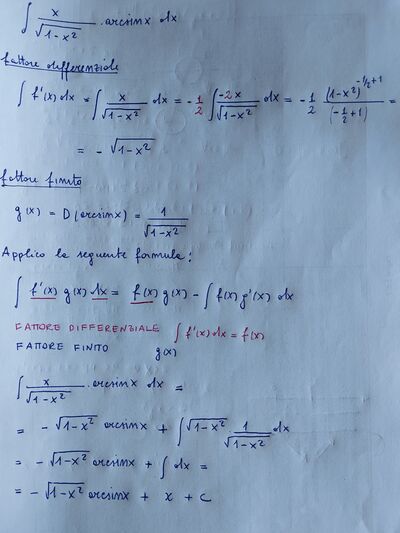 ∫ x/√(1-x²) · arcsinx dx
fattore differenziale
∫ f'(x) dx = ∫ x/√(1-x²) dx = -1/2 ∫ -2x/√(1-x²) dx = -1/2 (1-x²)^(-1/2+1)/(-1/2+1) =
= - √(1-x²)
fattore finito
g(x) = D(arcsinx) = 1/√(1-x²)
Applico la seguente formula:
∫ f'(x) g(x) dx = f(x) g(x) - ∫ f(x) g'(x) dx
FATTORE DIFFERENZIALE ∫ f'(x) dx = f(x)
FATTORE FINITO g(x)
∫ x/√(1-x²) · arcsinx dx =
= - √(1-x²) arcsinx + ∫ √(1-x²) · 1/√(1-x²) dx
= - √(1-x²) arcsinx + ∫ dx =
= - √(1-x²) arcsinx + x + c